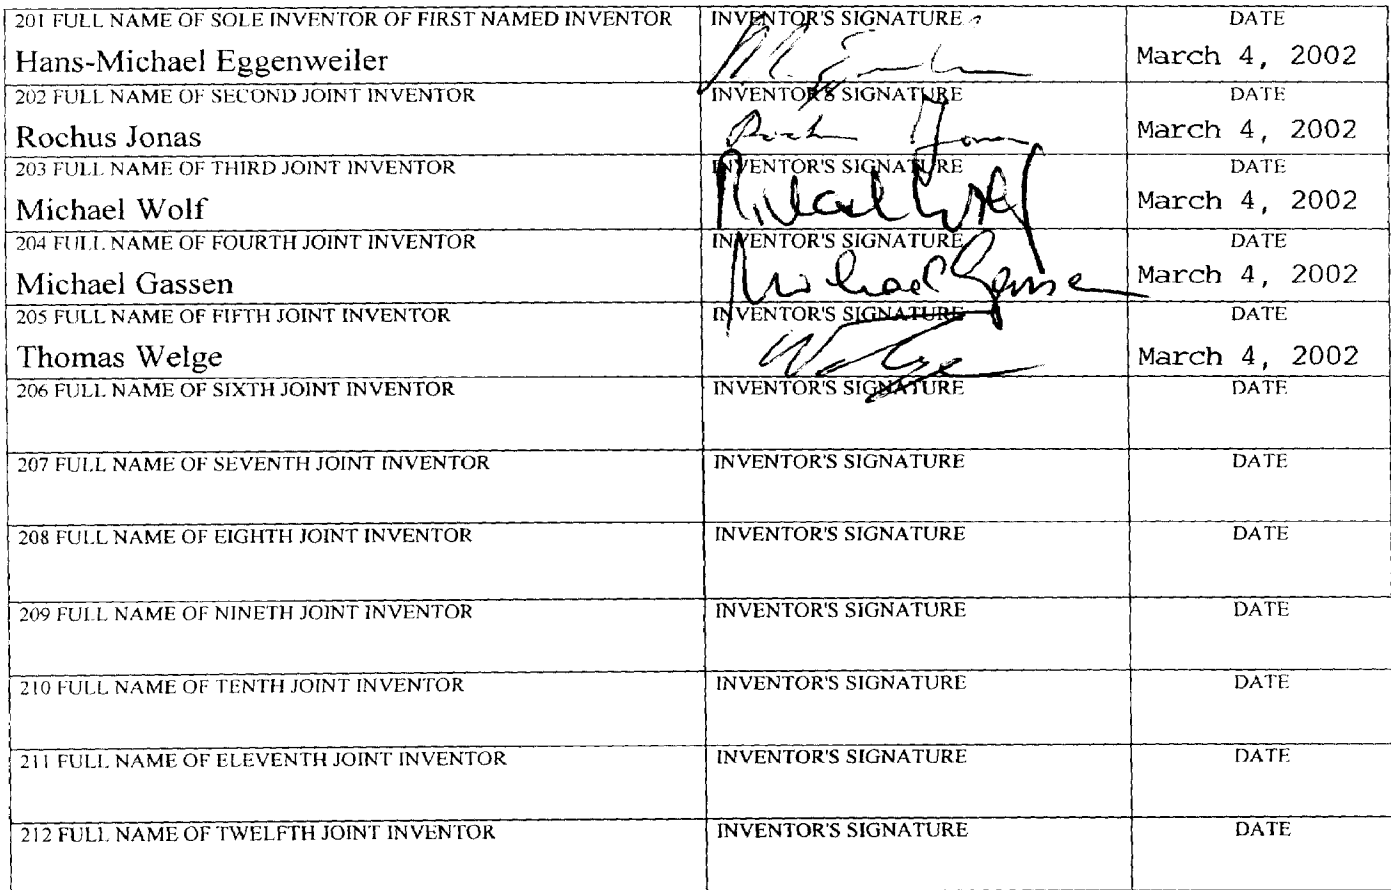 201 FULL NAME OF SOLE INVENTOR OF FIRST NAMED INVENTOR INVENTOR'S SIGNATURE DATE
Hans-Michael Eggenweiler March 4, 2002
202 FULL NAME OF SECOND JOINT INVENTOR INVENTOR'S SIGNATURE DATE
Rochus Jonas March 4, 2002
203 FULL NAME OF THIRD JOINT INVENTOR INVENTOR'S SIGNATURE DATE
Michael Wolf Michael Wolf March 4, 2002
204 FULL NAME OF FOURTH JOINT INVENTOR INVENTOR'S SIGNATURE DATE
Michael Gassen Michael Gassen March 4, 2002
205 FULL NAME OF FIFTH JOINT INVENTOR INVENTOR'S SIGNATURE DATE
Thomas Welge Welge March 4, 2002
206 FULL NAME OF SIXTH JOINT INVENTOR INVENTOR'S SIGNATURE DATE
207 FULL NAME OF SEVENTH JOINT INVENTOR INVENTOR'S SIGNATURE DATE
208 FULL NAME OF EIGHTH JOINT INVENTOR INVENTOR'S SIGNATURE DATE
209 FULL NAME OF NINETH JOINT INVENTOR INVENTOR'S SIGNATURE DATE
210 FULL NAME OF TENTH JOINT INVENTOR INVENTOR'S SIGNATURE DATE
211 FULL NAME OF ELEVENTH JOINT INVENTOR INVENTOR'S SIGNATURE DATE
212 FULL NAME OF TWELFTH JOINT INVENTOR INVENTOR'S SIGNATURE DATE